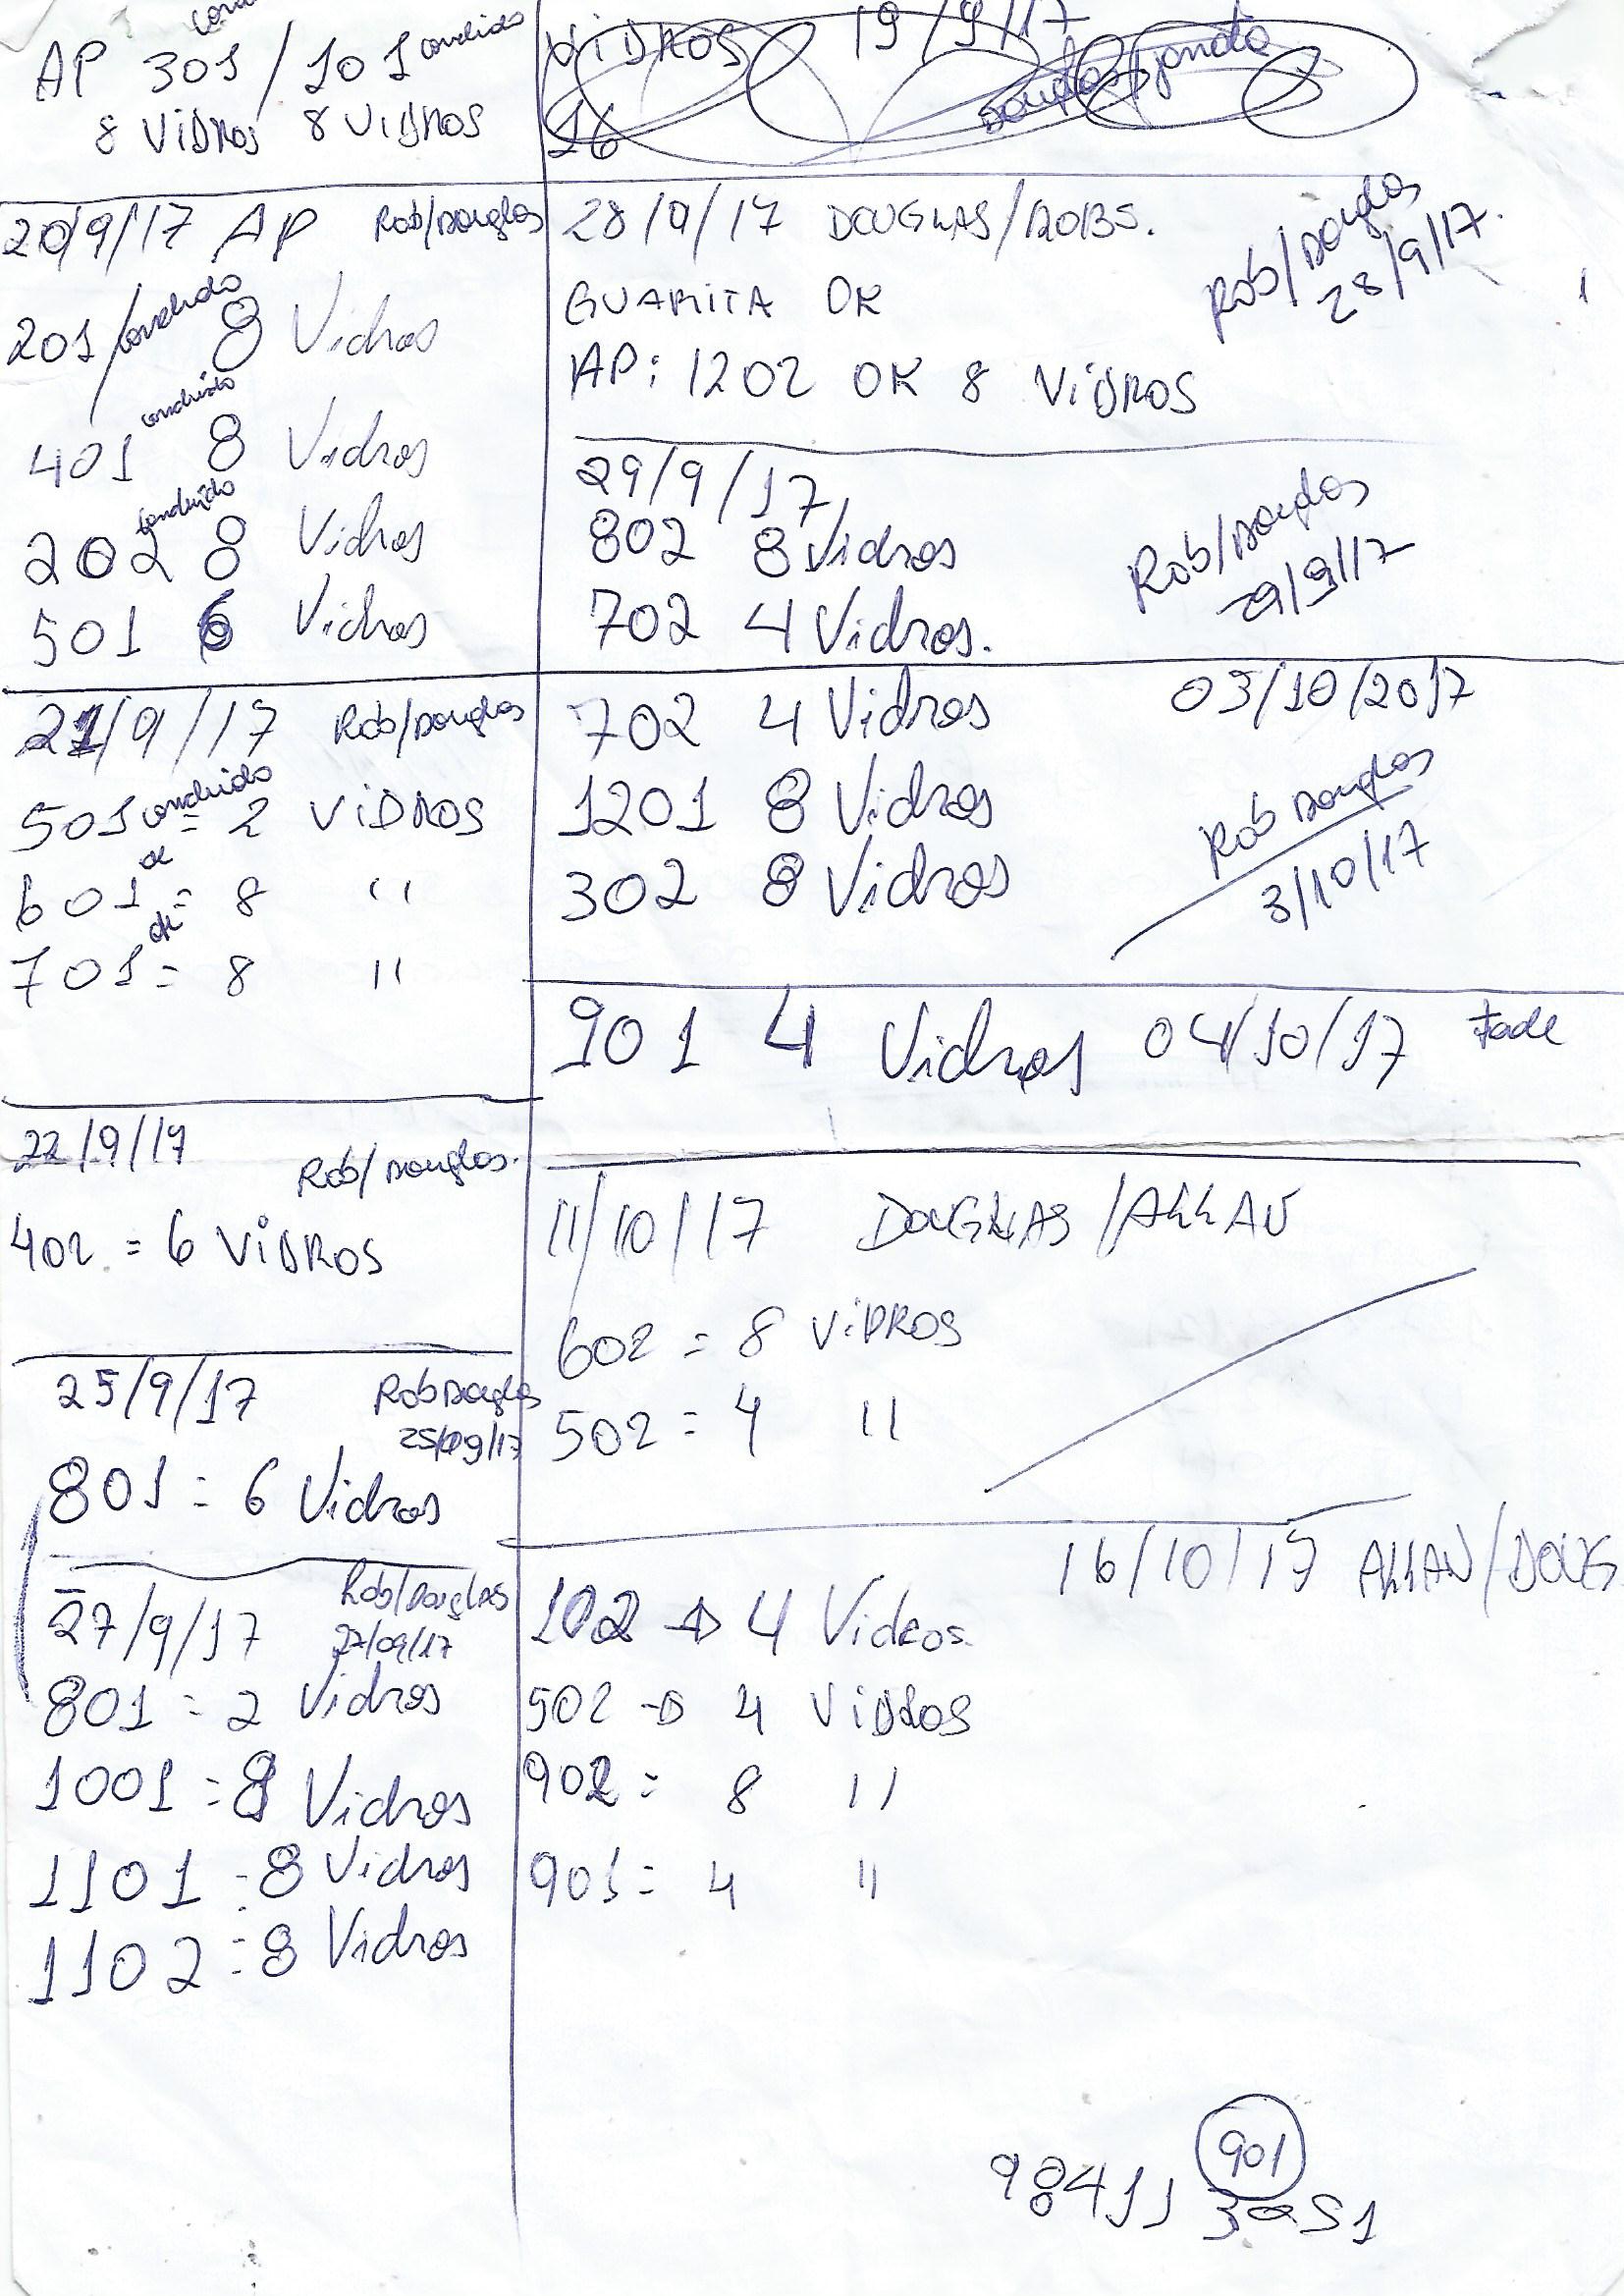 AP 301 / 101 concluido
8 ViDROS 8 ViDROS
ViDROS 19/9/17
16
20/9/17 AP Rob/Douglas
201/concluido 8 Vidros
concluido
401 8 Vidros
concluido
202 8 Vidros
501 6 Vidros
21/9/17 Rob/Douglas
501 concluido = 2 ViDROS
ok
601 = 8 "
ok
701 = 8 "
22/9/17
Rob/Douglas.
402 = 6 ViDROS
25/9/17 Rob Douglas
25/09/17
801 = 6 Vidros
27/9/17 Rob/Douglas
27/09/17
801 = 2 Vidros
1001 = 8 Vidros
1101 = 8 Vidros
1102 = 8 Vidros
28/9/17 DOUGLAS/ROBS.
Rob/Douglas
28/9/17.
GUARITA OK
AP: 1202 OK 8 ViDROS
29/9/17
802 8 Vidros
702 4 Vidros.
Rob/Douglas
29/9/17
702 4 Vidros 03/10/2017
1201 8 Vidros
302 8 Vidros
Rob Douglas
3/10/17
901 4 Vidros 04/10/17
11/10/17 DOUGLAS/ALLAN
602 = 8 ViDROS
502 = 4 "
16/10/17 ALLAN/DOUG
102 → 4 Vidros.
502 → 4 ViDROS
902 = 8 "
901 = 4 "
901